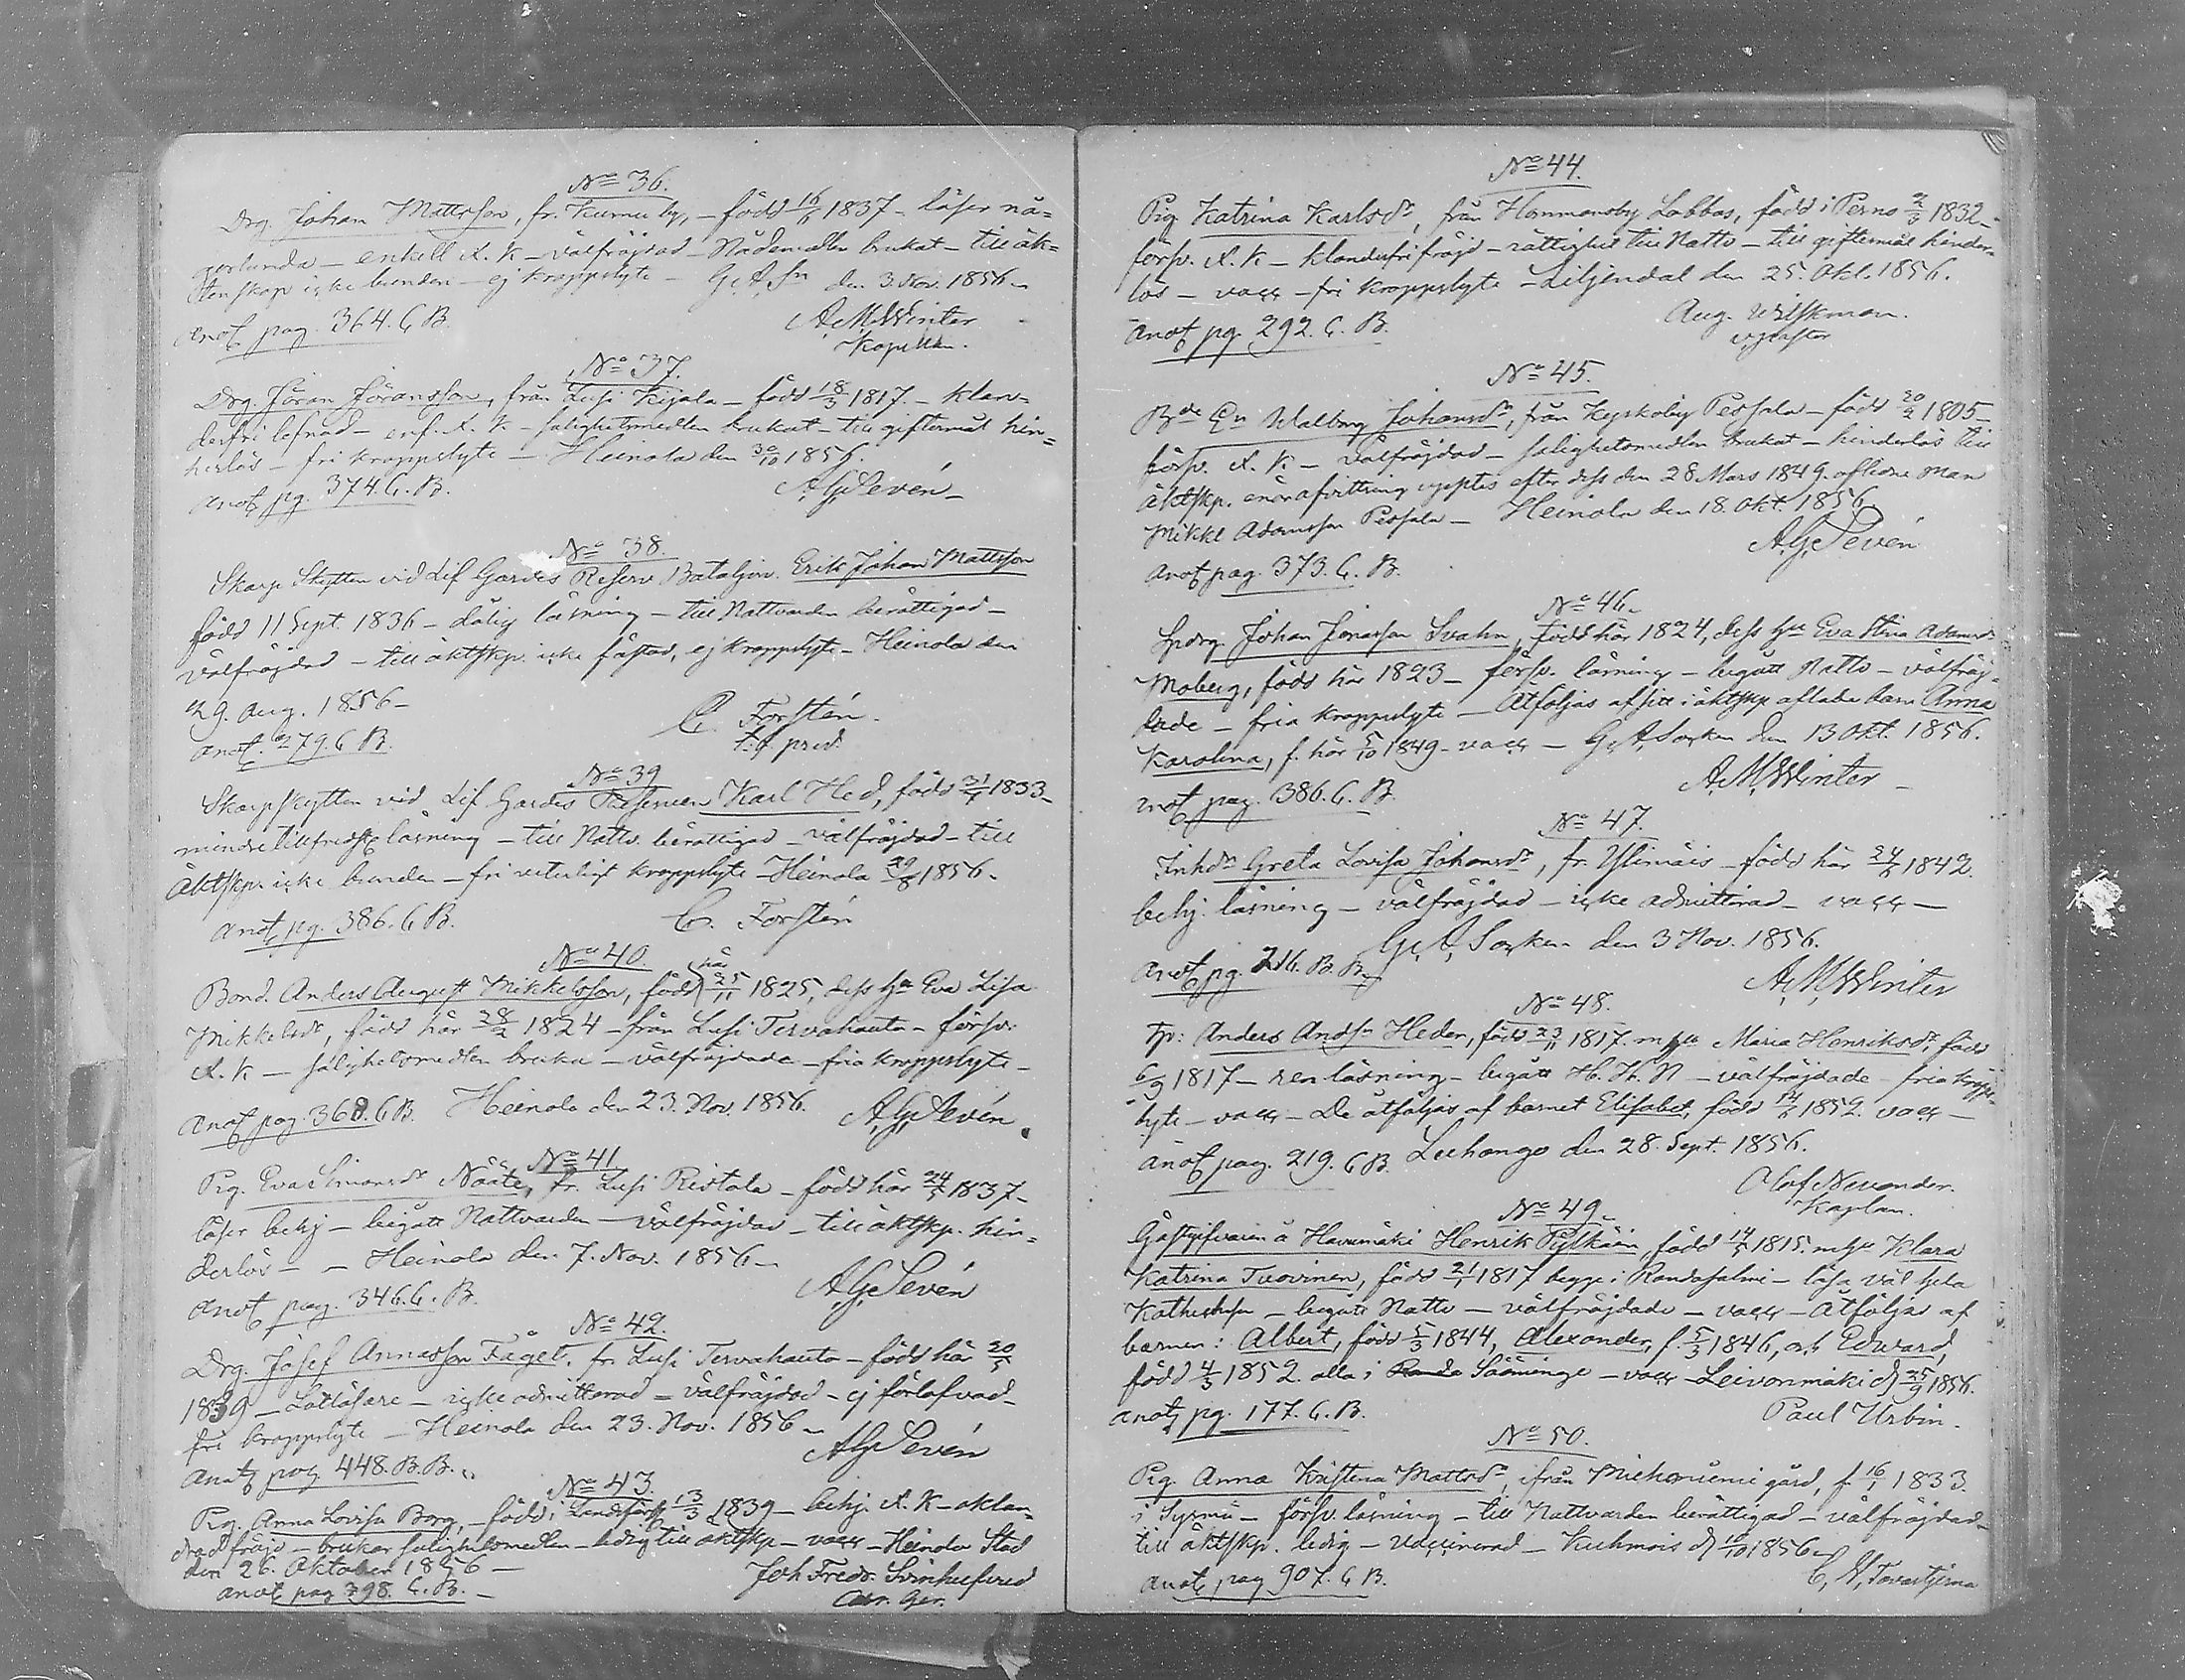 No 36.
Drg. Johan Mattsson, fr. Kurnu by, – född 16/6 1837 – läser nå=
gorlunda – enkell A. K – välfräjdad – Nådemedlen brukat – till äk=
tenskap icke bunden – ej kroppslyte – G. A. Sn den 3. Nov. 1856 –
anot pag. 364. C B.
A. M. Winter
Kapellan.
No 37.
Drg. Jöran Jöransson, från Lusi Keijala – född 18/3 1817 – klan=
derfri lefnad – enf. A. K – salighetsmedlen brukat – till giftermål hin=
derlös – fri kroppslyte – Heinola den 30/10 1856.
anot pg. 374. C. B.
A. G. Levén –
No 38.
Skarp Skytten vid Lif Gardes Reserv Bataljon Erik Johan Mattsson
född 11 Sept. 1836 – dålig läsning – till Nattvarden berättigad –
välfräjdad – till äktskp. icke fästad, ej kroppslyte – Heinola den
29. Aug. 1856 –
anot. 279. C B.
C. Forstén.
t. f. pred.
No 39
Skarpskytten vid Lif Gardes Reserven Karl Hed, född 31/7 1833 –
mindre tillfredst läsning – till Nattv. berättigad – välfräjdad – till
äktskp. icke bunden – fri veterligt kroppslyte – Heinola 29/8 1856 –
anot pg. 386. C B.
C. Forstén
No 40.
Bond. Anders August Mikkelsson, född här 25/11 1825, dess hu Eva Lisa
Mikkelsdr, född här 28/2 1824 – från Lusi Tervahauta – försv.
A. K – salighetsmedlen bruka – välfräjdade – fria kroppslyte –
anot pag. 368. C B. Heinola den 23. Nov. 1856. A. G. Levén.
No 41
Pig. Eva Simonsdr Nääte, fr. Lusi Ristola – född här 24/5 1837 –
läser behj – begått Nattvarden – välfräjdad – till äktskp. hin=
derlös – – Heinola den 7. Nov. 1856 –
anot pag. 346. C. B.
A. G. Levén
No 42.
Drg. Josef Annasson Fågel, fr. Lusi Tervahauta – född här 20/5
1839 – Lottläsare – icke admitterad – välfräjdad – ej förlofvad –
fri kroppslyte – Heinola den 23. Nov. 1856 –
anot pag. 448. B. B.
A. G. Levén
No 43.
Pig. Anna Lovisa Borg, – född i 13/3 1839 – behj. A. K – oklan=
drad fräjd – brukar salighetsmedlen – ledig till äktskp – vacc – Heinola Stad
den 26. Oktober 1856 –
anot pag 398. C. B. –
Joh Fredr. Svinhufvud
No 44.
Pig Katrina Karlsdr, från Hommansby Labbas, född i Perno 2/3 1832 –
försv. A. K – klanderfri fräjd – rättighet till Nattv – till giftermål hinder=
lös – vacc – fri kroppslyte – Liljendal den 25. Okt. 1856.
anot pg. 292. C. B.
Aug. Wilskman.
v. pastor
No 45.
Bde En Walborg Johansdr, från Kyrkoby Pessala – född 20/2 1805 –
försv. A. K. – välfräjdad – salighetsmedlen brukat – hinderlös till
äktskp. enär afvittring uppter efter dess den 28 Mars 1849. aflidne man
Mikkel Adamsson Pessala – Heinola den 18. Okt. 1856
anot pag. 373. C. B.
A. G. Levén
No 46.
Spdrg. Johan Jonasson Svahn, född här 1824, dess hu Eva Stina Adamsdr
Moberg, född här 1823 – försv. läsning – begått Nattv – välfräj=
dade – fria kroppslyte – Åtföljas af sitt i äktskp aflade barn Anna
Karolina, f. här 5/10 1849 – vacc – G. A. Socken den 13 Okt. 1856.
anot pag. 386. C. B.
A. M. Winter –
No 47.
Inhdr Greta Lovisa Johansdr, fr. Ylimäis – född här 24/6 1842.
behj. läsning – välfräjdad – icke admitterad – vacc –
G. A. Socken den 3 Nov. 1856.
anot pg. 216. B. B.
A. M. Winter
No 48.
Tp: Anders Andsn Heder, född 23/11 1817. m hu Maria Henriksdr, född
6/9 1817 – ren läsning – begått H. H. N – välfräjdade – fria kropps=
lyte – vacc – De åtföljas af barnet Elisabet, född 14/6 1852. vacc –
anot pag. 219. C B. Leehango den 28. Sept. 1856.
Olof Nevander.
Kaplan.
No 49.
Gästgifvaren å Havumäki Henrik Pylkäin, född 14/5 1815. m hu Klara
Katrina Tuovinen, född 21/1 1817 begge i Randasalmi – läsa väl hela
Kathesen – begått Nattv – välfräjdade – vacc – Åtföljas af
barnen: Albert, född 5/3 1844, Alexander, f. 5/3 1846, och Edward,
född 4/3 1852. alla i Randa Sääminge – vacc – Leivonmäki d 25/9 1856.
anot pg. 177. C. B.
Paul Urbin.
No 50.
Pig. Anna Kristina Mattsdr, ifrån gård, f. 16/1 1833
i Sysmä – försv. läsning – till Nattvarden berättigad – välfräjdad –
till äktskp. ledig – Vaccinerad – Kuhmois d 10/10 1856
anot pag 907. C B.
C. A. Tavastjerna